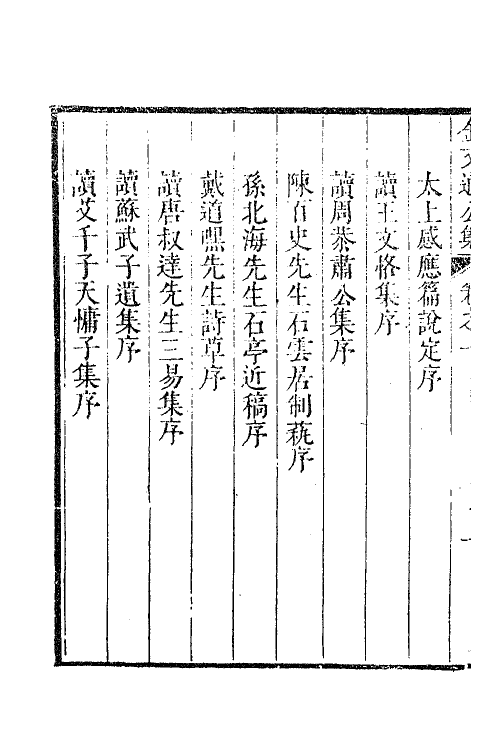 太上感應篇說定序
讀王文恪集序
讀周恭肅公集序
陳百史先生石雲居制蓺序
孫北海先生石亭近稿序
戴道默先生詩草序
讀唐叔達先生三易集序
讀蘇武子遺集序
讀艾千子天慵子集序